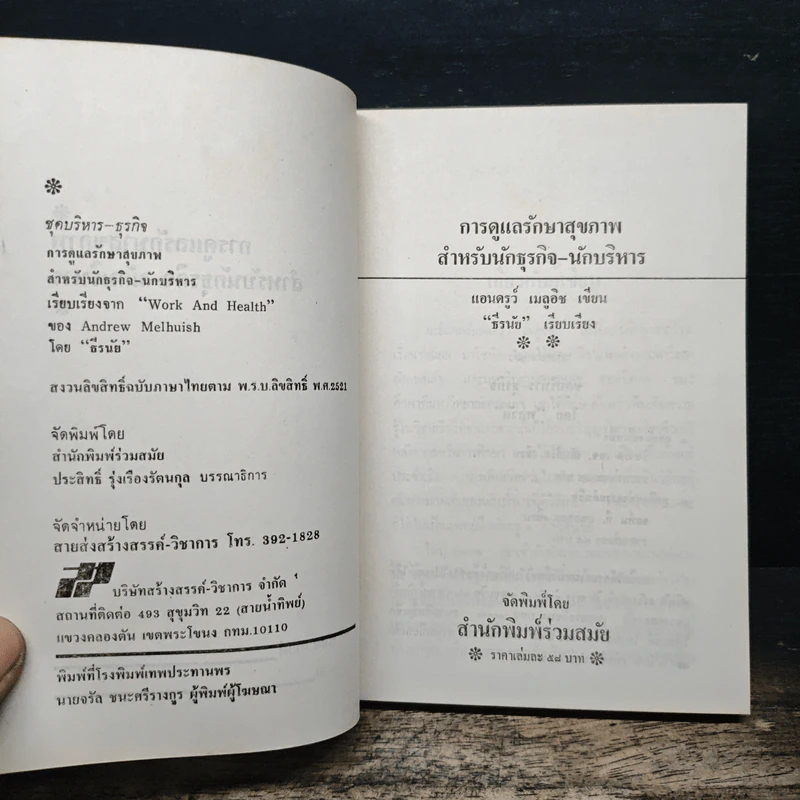 ชุดบริหาร-ธุรกิจ
การดูแลรักษาสุขภาพ
สำหรับนักธุรกิจ-นักบริหาร
เรียบเรียงจาก “Work And Health”
ของ Andrew Melhuish
โดย “ธีรนัย”
สงวนลิขสิทธิ์ฉบับภาษาไทยตาม พ.ร.บ.ลิขสิทธิ์ พ.ศ.2521
จัดพิมพ์โดย
สำนักพิมพ์ร่วมสมัย
ประสิทธิ์ รุ่งเรืองรัตนกุล บรรณาธิการ
จัดจำหน่ายโดย
สายส่งสร้างสรรค์-วิชาการ โทร. 392-1828
บริษัทสร้างสรรค์-วิชาการ จำกัด
สถานที่ติดต่อ 493 สุขุมวิท 22 (สายน้ำทิพย์)
แขวงคลองตัน เขตพระโขนง กทม.10110
พิมพ์ที่โรงพิมพ์เทพประทานพร
นายจรัล ชนะศรีรางกูร ผู้พิมพ์ผู้โฆษณา
การดูแลรักษาสุขภาพ
สำหรับนักธุรกิจ-นักบริหาร
แอนดรูว์ เมลูอิช เขียน
“ธีรนัย” เรียบเรียง
จัดพิมพ์โดย
สำนักพิมพ์ร่วมสมัย
ราคาเล่มละ ๕๘ บาท